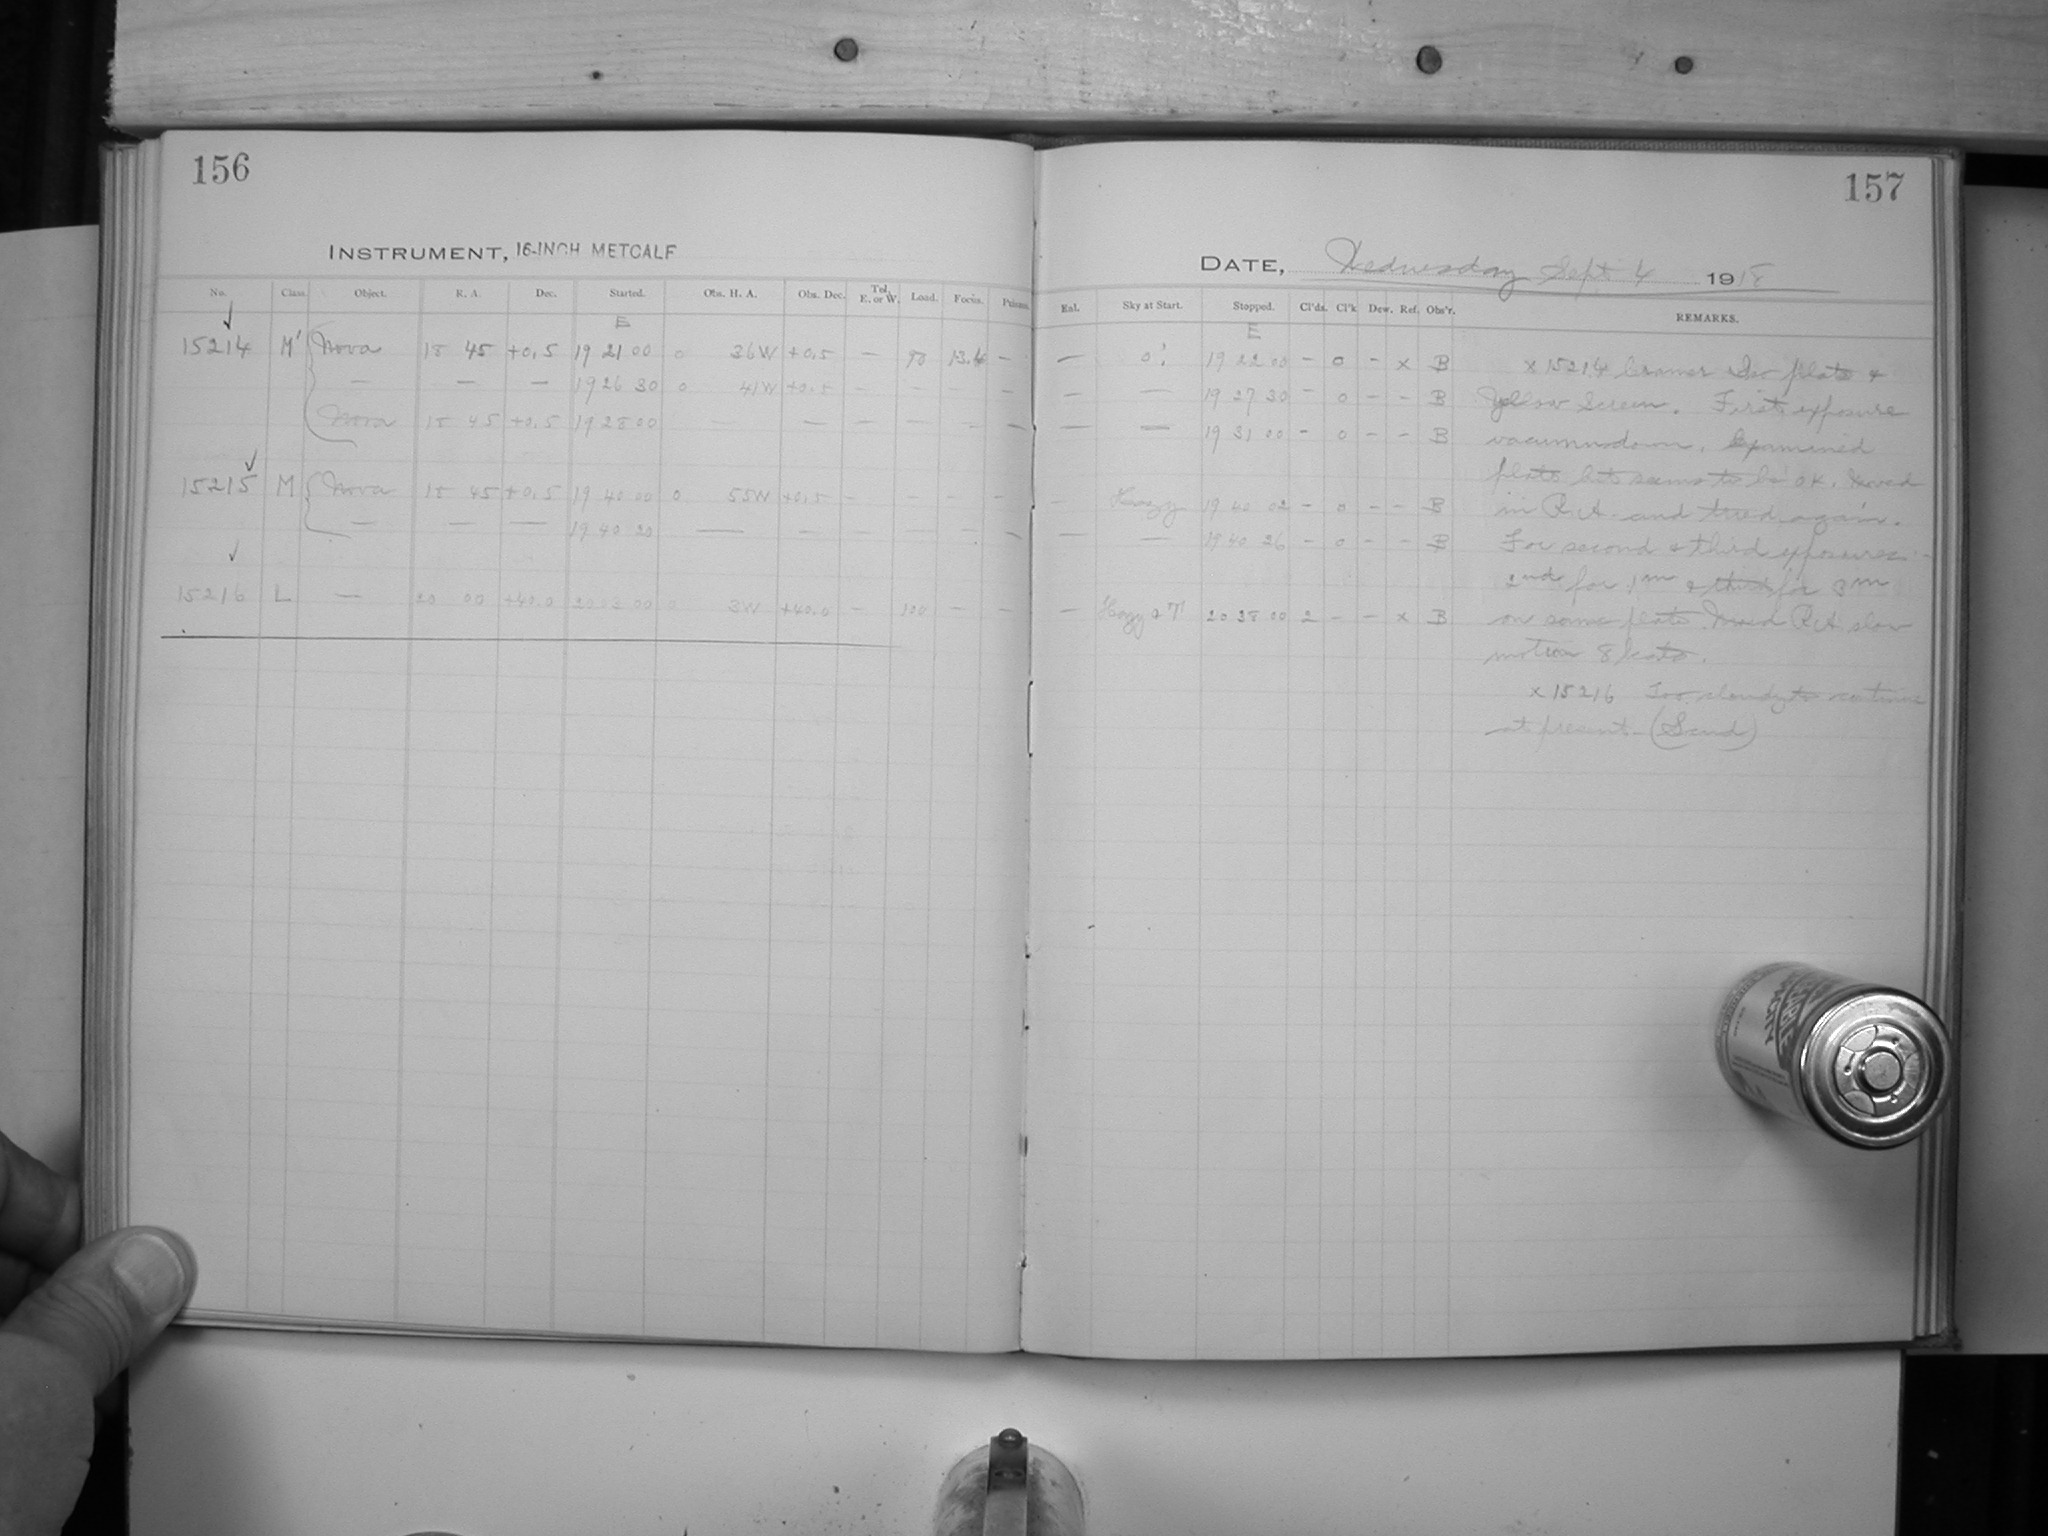 156
INSTRUMENT, 16-INCH METCALF
No. Class. Object. R. A. Dec. Started. Obs. H. A. Obs. Dec. Tel. E. or W. Load. Focus.
E
15214 M' Nova 18 45 +0.5 19 21 00 0 36W +0.5 — 90 13.6 —
— — — 19 26 30 0 41W +0.5 — — — —
Nova 18 45 +0.5 19 28 00 — — — — — —
15215 M Nova 18 45 +0.5 19 40 00 0 55W +0.5 — — — —
— — — 19 40 20 — — — — — —
15216 L — 20 00 +40.0 20 03 00 0 3W +40.0 — 100 — —
157
DATE, Wednesday Sept 4 1918
Sky at Start. Stopped. Cl'ds. Cl'k Dew. Ref. Obs'r. REMARKS.
E
— 0! 19 22 00 – 0 – x B
— — 19 27 30 – 0 – – B
— — 19 31 00 – 0 – – B
— Hazy 19 40 02 – 0 – – B
— — 19 40 26 – 0 – – B
— Hazy & T 20 38 00 2 – – x B
x 15214 Cramer Iso plate &
Yellow Screen. First exposure
vacuum down. Examined
plate but seems to be OK. Moved
in R.A. and tried again.
For second & third exposures
2nd for 1m & third for 3m
on same plate. Moved R.A. slow
motion 8
x 15216 Too cloudy to continue
at present. (Send)